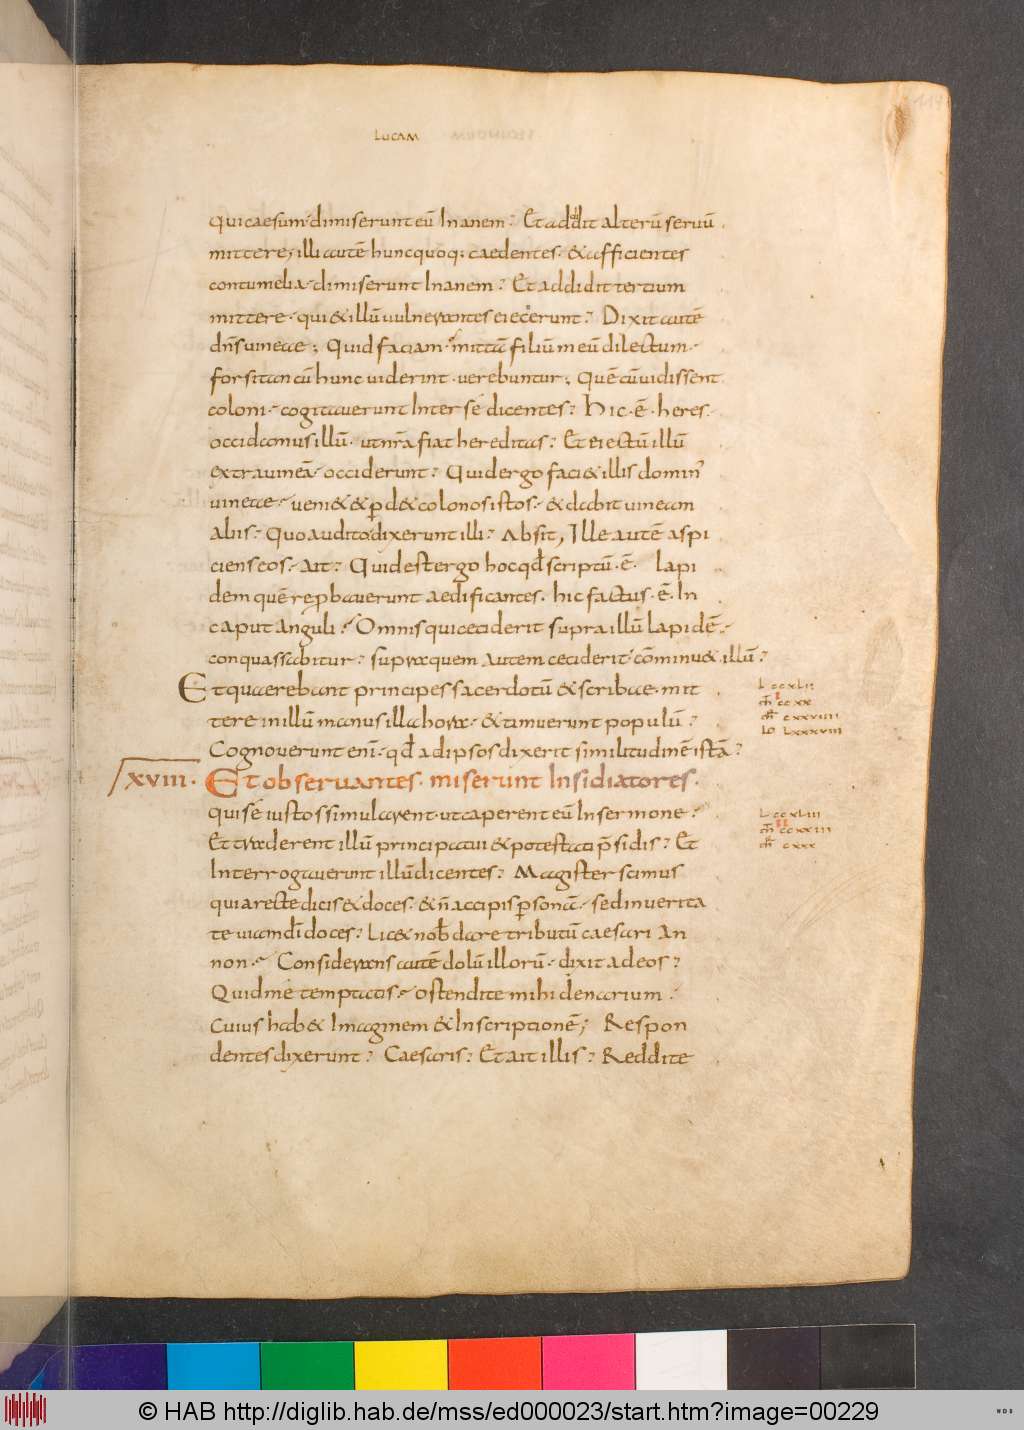 LUCAM
114
qui caesum dimiserunt eū Inanem: Et addidit alterū seruū
mittere; illi autē hunc quoq; caedentes. & afficientes
contumelia dimiserunt Inanem: Et addidit tertium
mittere. qui & illū uulnerantes eiecerunt: Dixit autē
dn̄s uineae; Quid faciam. mittā filiū meū dilectum.
forsitan cū hunc uiderint. uerebuntur; Quē cū uidissent
coloni. cogitauerunt Inter sé dicentes: Hic. ē. heres.
occidamus illū. ut nr̄a fiat hereditas: Et eiectū illū
extra uineā. occiderunt: Quid ergo faci& illis domin'
uineae. ueni& & ꝑd& colonos istos. & dabit uineam
Aliis: Quo audito dixerunt illi: Absit, Ille autē aspi
ciens eos. Ait: Quid est ergo hoc qd̄ scriptū. ē. lapi
dem quē reꝓbauerunt aedificantes. hic factus. ē. In
caput Anguli: Omnis qui ceciderit supra illū Lapidē.
conquassabitur: supra quem Autem ceciderit cōminu& illū:
Et quaerebant principes sacerdotū & scribae. mit
tere in illū manus illa hora. & timuerunt populū:
Cognouerunt eni. qd̄ ad ipsos dixerit similitudinē istā:
XVIII. Et obseruantes. miserunt Insidiatores.
qui sé iustos simularent. ut caperent eū In sermone:
Et traderent illū principatui & potestati p̄sidis: Et
Interrogauerunt illū dicentes: Magister scimus
quia recte dicis & doces. & n̄ accipis ꝑsonā. sed in uerita
te uiam dī doces: Lic& nob̄ dare tributū caesari An
non. Considerans autē dolū illorū. dixit ad eos:
Quid mé temptatis. ostendite mihi denarium:
Cuius hab& Imaginem & Inscriptionē; Respon
dentes dixerunt: Caesaris: Et Ait illis: Reddite
L ccxlii
m̄ ccxx
m̄ cxxviiii
IO Lxxxviii
L ccxliii
m̄ ccxxiii
m̄ cxxx
© HAB http://diglib.hab.de/mss/ed000023/start.htm?image=00229
WDB